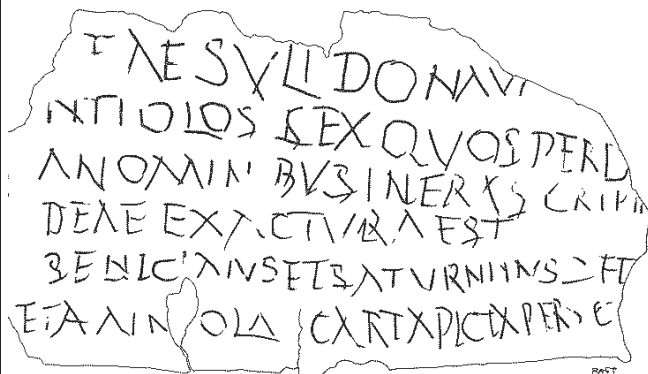 EAE SVLI DONAVI
NTIOLOS SEX QVOS PERD
A NOMINIBVS INFRASCRIPTI
DEAE EXACTVRA EST
SENICIANVS ET SATVRNINVS SED
ET ANNIOLA CARTA PICTA PERSC